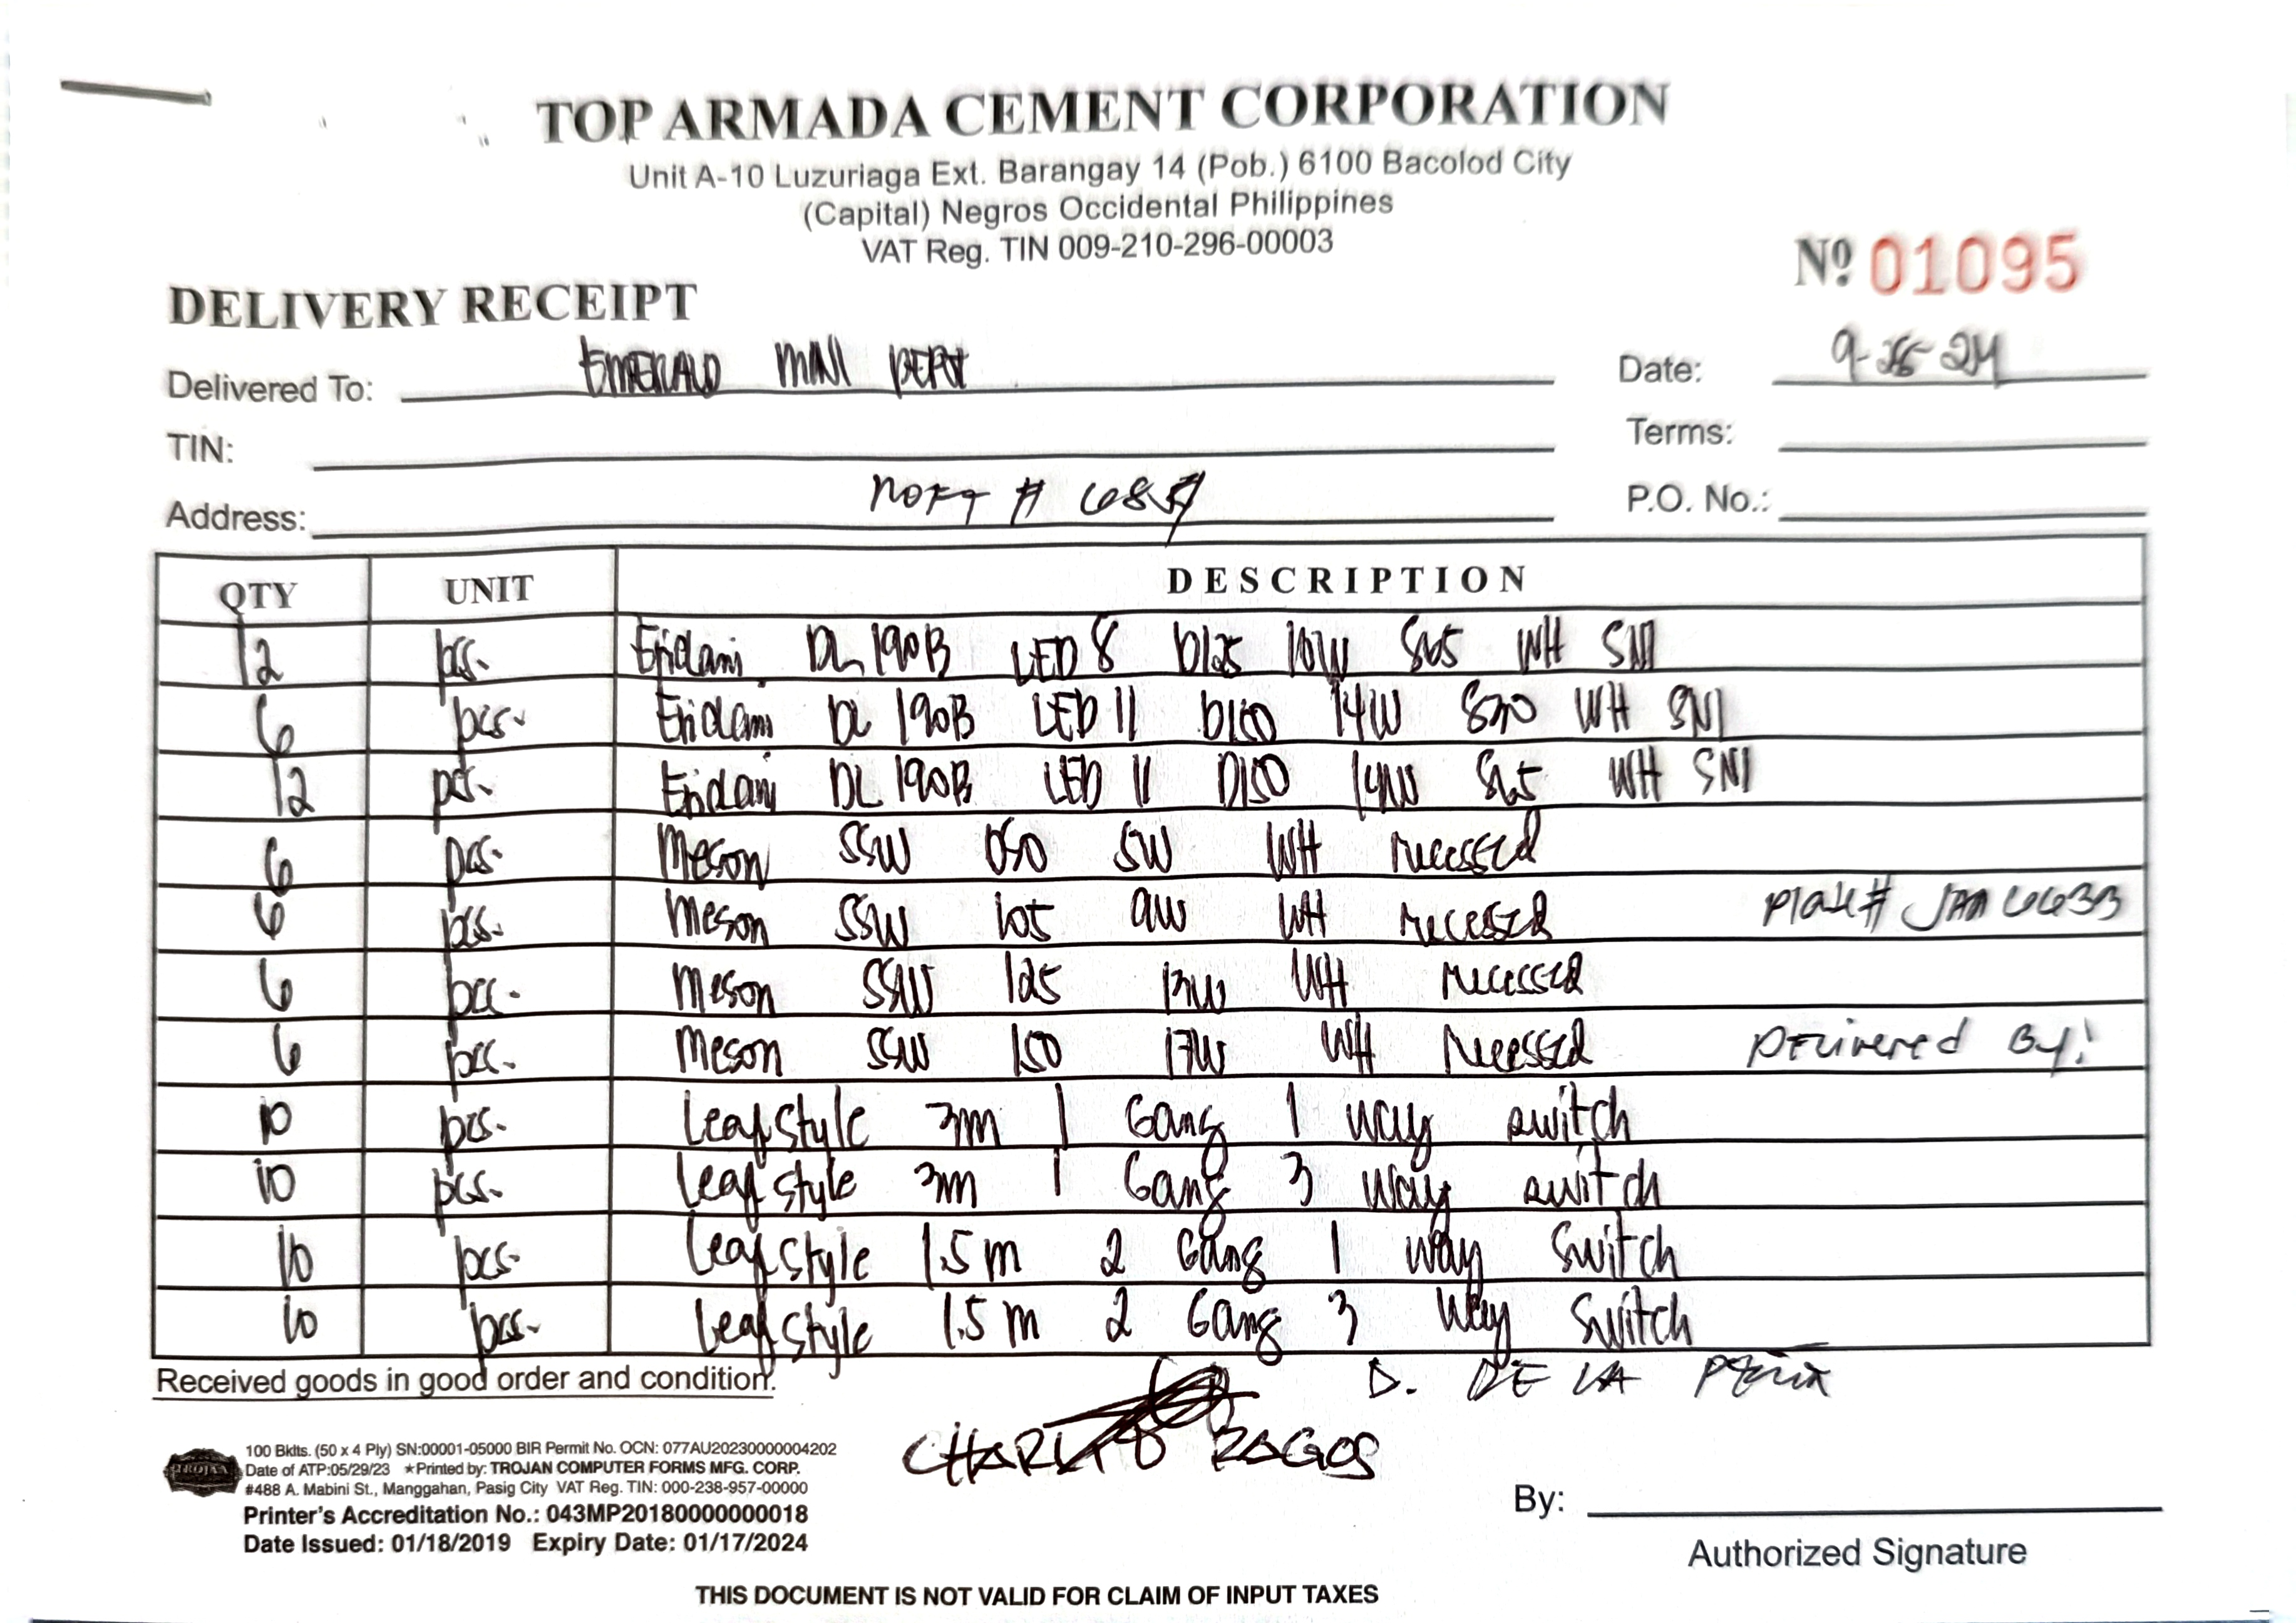 TOP ARMADA CEMENT CORPORATION
Unit A-10 Luzuriaga Ext. Barangay 14 (Pob.) 6100 Bacolod City
(Capital) Negros Occidental Philippines
VAT Reg. TIN 009-210-296-00003
Nº 01095
DELIVERY RECEIPT
Delivered To: EMERALD MINI DEPOT
Date: 9-26-24
TIN:
Terms:
Address: #
P.O. No.:
QTY UNIT DESCRIPTION
12 pcs. Eridani DL 190B LED 8 D125 10W 865 WH SNI
6 pcs. Eridani DL 190B LED 11 D150 14W 830 WH SNI
12 pcs. Eridani DL 190B LED 11 D150 14W 865 WH SNI
6 pcs. Meson SSW 080 5W WH recessed
6 pcs. Meson SSW 105 9W WH recessed Plate# JAA 6633
6 pcs. Meson SSW 125 13W WH recessed
6 pcs. Meson SSW 150 17W WH recessed Delivered By:
10 pcs. Leaf style 3m 1 Gang 1 way switch
10 pcs. Leaf style 3m 1 Gang 3 way switch
10 pcs. Leaf style 1.5 m 2 Gang 1 way switch
10 pcs. Leaf style 1.5 m 2 Gang 3 way switch
Received goods in good order and condition.
D. DE LA PEÑA
CHARLITO RAGOS
100 Bklts. (50 x 4 Ply) SN:00001-05000 BIR Permit No. OCN: 077AU20230000004202
Date of ATP:05/29/23 ★Printed by: TROJAN COMPUTER FORMS MFG. CORP.
#488 A. Mabini St., Manggahan, Pasig City VAT Reg. TIN: 000-238-957-00000
Printer's Accreditation No.: 043MP20180000000018
Date Issued: 01/18/2019 Expiry Date: 01/17/2024
TROJAN
By:
Authorized Signature
THIS DOCUMENT IS NOT VALID FOR CLAIM OF INPUT TAXES